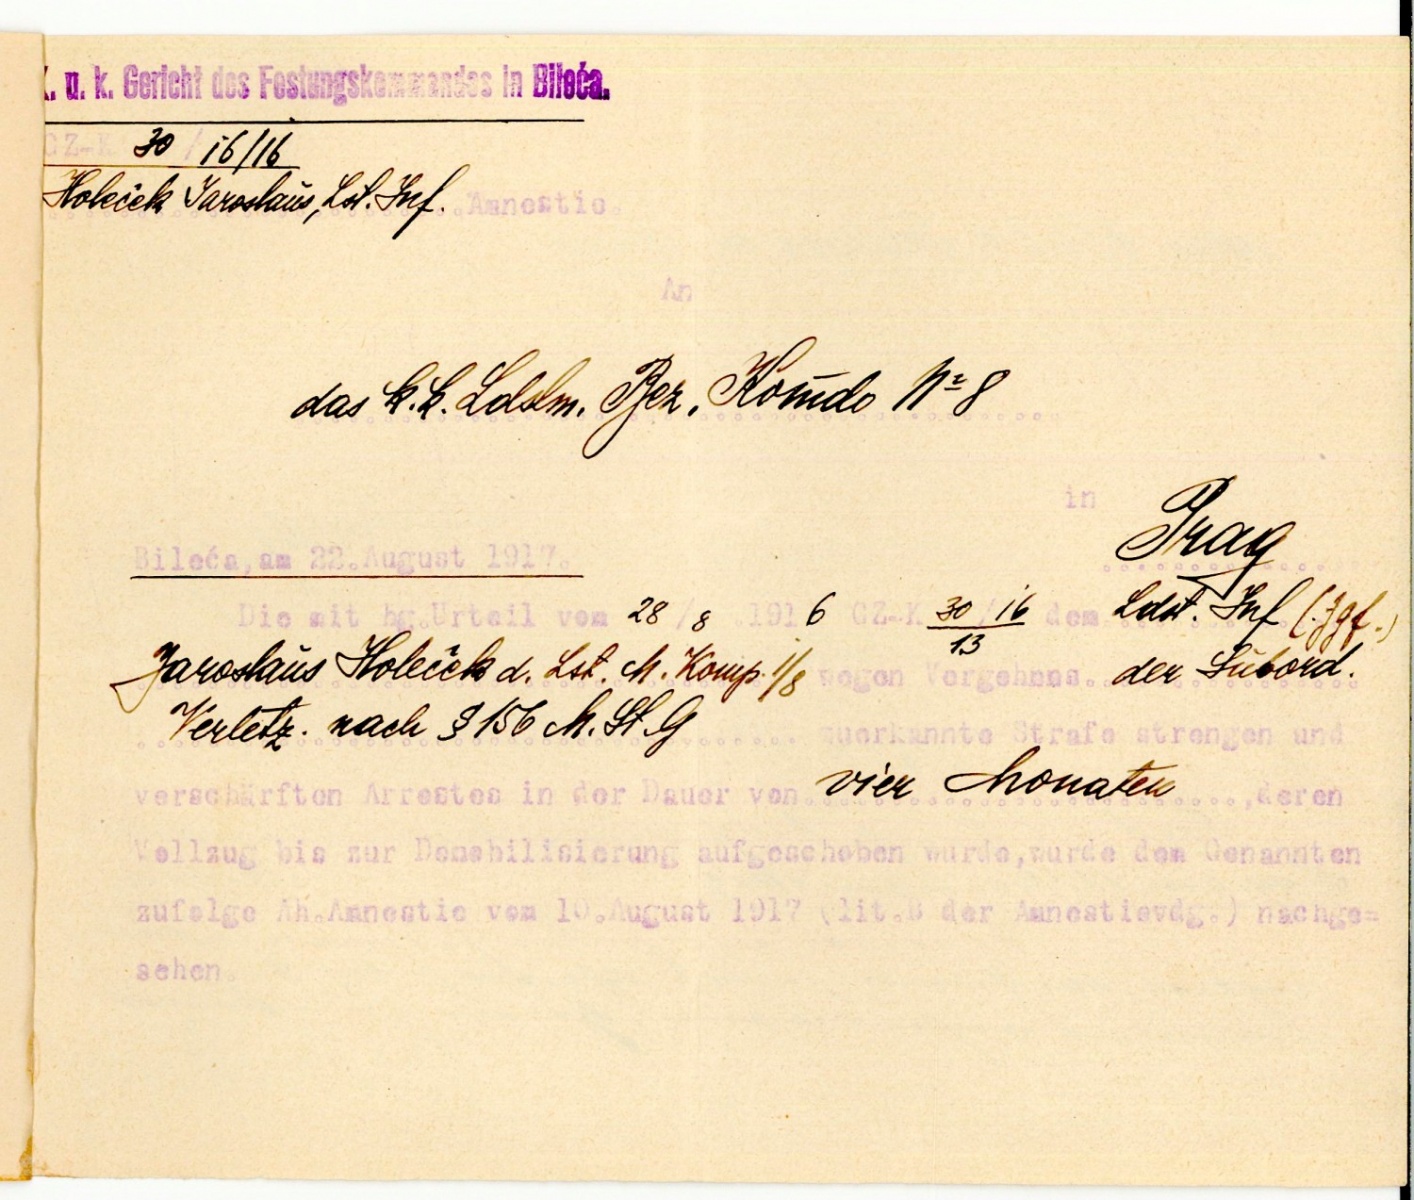 K. u. k. Gericht des Festungskommandos in Bileća.
GZ-K 30/16/16
Holeček Jaroslaŭs, Lst. Inf. Amnestie.
An
das k.k. Ldstm. Bez. Kom̄do No 8
in Prag
Bileća, am 22. August 1917.
Die mit hg. Urteil vom 28/8 1916 GZ-K 30/16 dem Ldst. Inf (.Zgf.)
13
Jaroslaŭs Holeček d. Lst. M. Komp. 1/8 wegen Vergehens der Sŭbord.
Verletz. nach § 156 M. St. G zuerkannte Strafe strengen und
verschärften Arrestes in der Dauer von vier Monaten, deren
Vollzug bis zur Demobilisierung aufgeschoben wurde, wurde dem Genannten
zufolge Ah. Amnestie vom 10. August 1917 (lit. B der Amnestievdg.) nachge=
sehen.